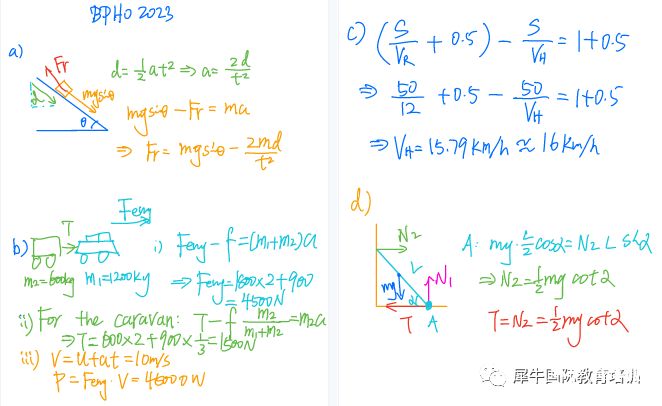 BPHO 2023
a)
Fr
mgsinθ
d
θ
d = ½at² ⇒ a = 2d/t²
mgsinθ - Fr = ma
⇒ Fr = mgsinθ - 2md/t²
b)
T
Feng
m₂=600kg m₁=1200kg
i) Feng - f = (m₁+m₂)a
⇒ Feng = 1800×2+900
= 4500N
ii) For the caravan: T - f m₂/(m₁+m₂) = m₂a
⇒ T = 600×2+900×1/3 = 1500N
iii) V = u+at = 10m/s
P = Feng · V = 45000W
c) (S/VR + 0.5) - S/VH = 1+0.5
⇒ 50/12 + 0.5 - 50/VH = 1+0.5
⇒ VH = 15.79 km/h ≈ 16 km/h
d)
N2
L
mg
N1
α
T
A
A: mg·L/2 cosα = N2 L sinα
⇒ N2 = ½mg cotα
T = N2 = ½mg cotα
犀牛国际教育培训